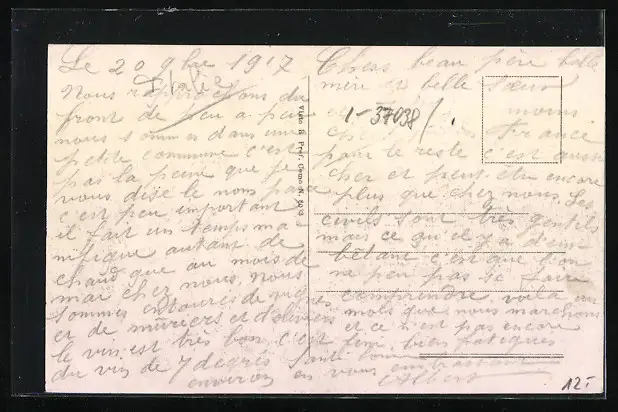 Le 20 9bre 1917
Italie
Nous rapprochons du
front de peu a peu
nous sommes dans une
petite commune c'est
pas la peine que je
vous dise le nom parce
c'est peu important
il fait un temps ma
nifique autant de
chaud que au mois de
mai chez nous, nous
sommes entourés de vignes
et de mûriers et d'oliviers
le vin est très bon c'est
du vin de 7 degrés
environ
Visto R. Pref. Como N. 8013
Chers beau père belle
mère et belle sœur
moins
1-37038/1.
France
pour le reste c'est aussi
cher et peut etre encore
plus que chez nous. Les
civils sont très gentils
mais ce qu'il y a d'em
bêtant c'est que l'on
ne peu pas se faire
comprendre, voila un
mois que nous marchons
et ce n'est pas encore
fini, bien fatigués
Santé bonne
en vous embrassant
Albert
12.-